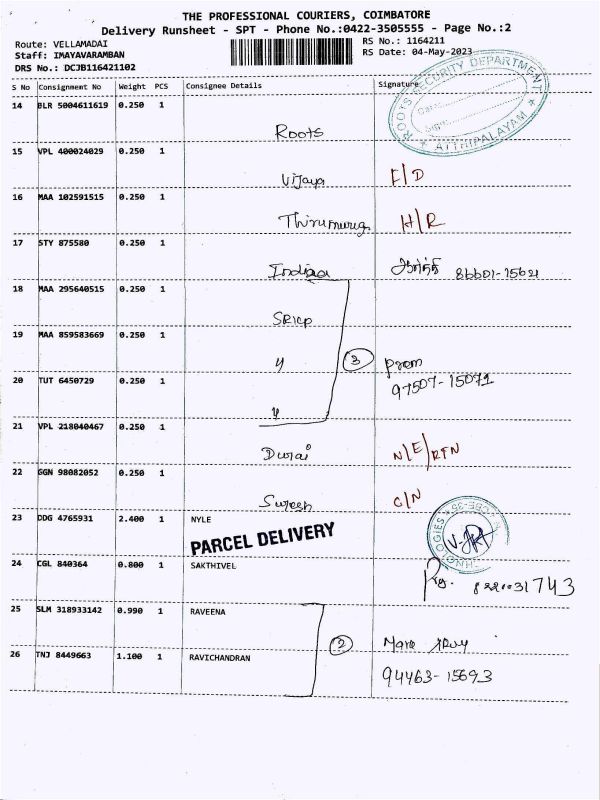 THE PROFESSIONAL COURIERS, COIMBATORE
Delivery Runsheet - SPT - Phone No.:0422-3505555 - Page No.:2
Route: VELLAMADAI
Staff: IMAYAVARAMBAN
DRS No.: DCJB116421102
RS No.: 1164211
RS Date: 04-May-2023
S No Consignment No Weight PCS Consignee Details Signature
ROOTS SECURITY DEPARTMENT
Date:
Sign:
★ ATTHIPALAYAM ★
14 BLR 5004611619 0.250 1 Roots
15 VPL 400024029 0.250 1 Vijaya F/D
16 MAA 102591515 0.250 1 Thirumurug H/R
17 STY 875580 0.250 1 India 86601-15621
18 MAA 295640515 0.250 1 SRICP
19 MAA 859583669 0.250 1 y 3 Prem
97507-15071
20 TUT 6450729 0.250 1 y
21 VPL 218040467 0.250 1 Durai N/E/RTN
22 GGN 98082052 0.250 1 Suresh C/N
23 DDG 4765931 2.400 1 NYLE
PARCEL DELIVERY
24 CGL 840364 0.800 1 SAKTHIVEL
25 SLM 318933142 0.990 1 RAVEENA
2
26 TNJ 8449663 1.100 1 RAVICHANDRAN 94463-15693